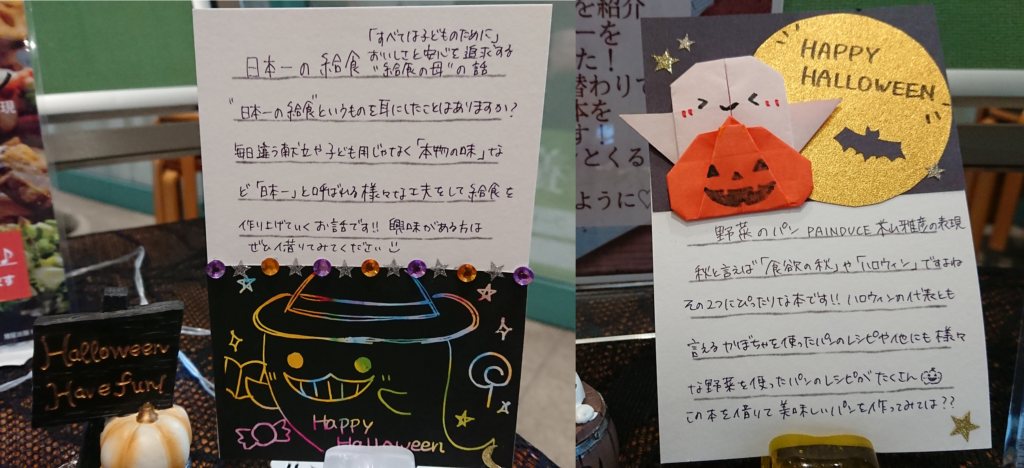 「すべては子どものために」
おいしさと安心を追求する
日本一の給食 "給食の母"の話
"日本一の給食"というものを耳にしたことはありますか?
毎日違う献立や子ども用じゃなく「本物の味」な
ど「日本一」と呼ばれる様々な工夫をして給食を
作り上げていくお話です!! 興味がある方は
ぜひ借りてみてください
Happy
Halloween
Halloween
Have fun!
を紹介
ーを
た!
替わりで
本を
す!
とくる
ように♡
HAPPY
HALLOWEEN
野菜のパン PAINDUCE 米山雅彦の表現
秋と言えば「食欲の秋」や「ハロウィン」ですよね
その2つにぴったりな本です!! ハロウィンの代表とも
言えるかぼちゃを使ったパンのレシピや他にも様々
な野菜を使ったパンのレシピがたくさん
この本を借りて美味しいパンを作ってみては??